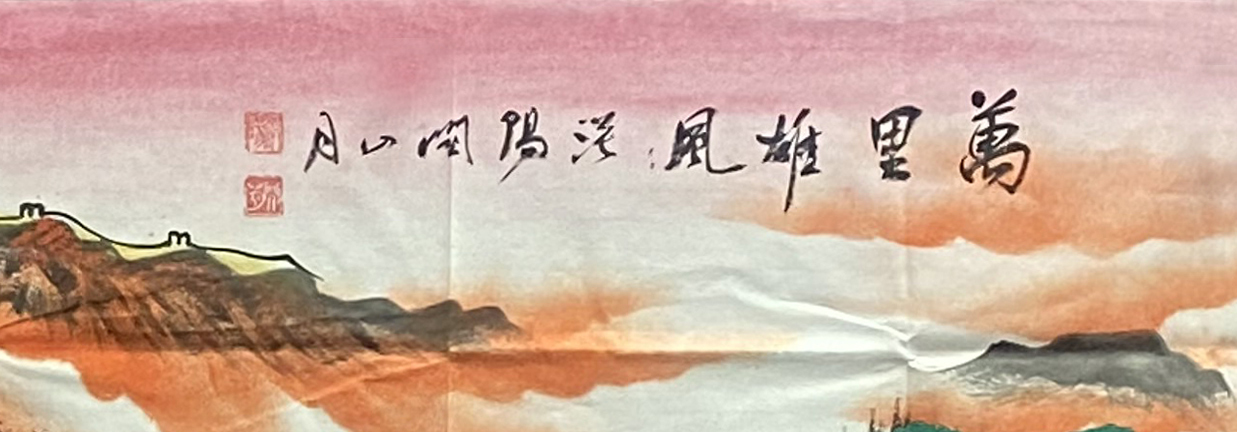 萬里雄風 漠陽關山月